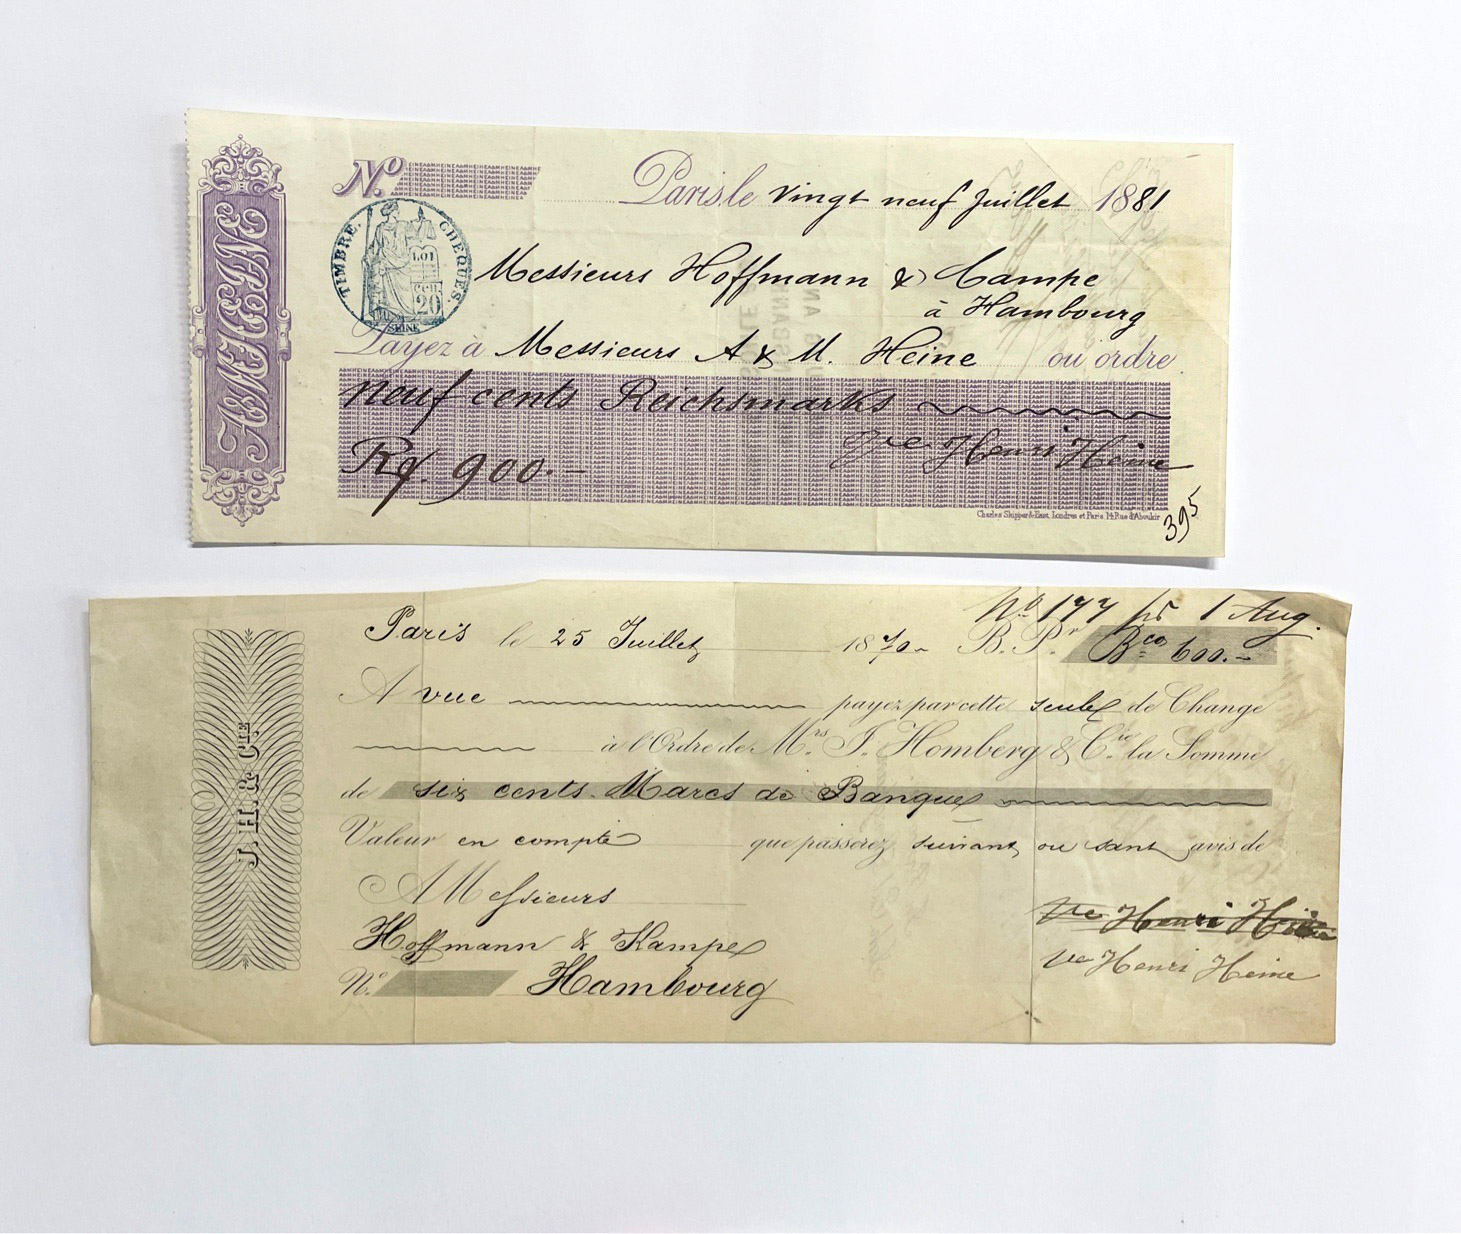 A & M HEINE
No
Paris le vingt neuf Juillet 1881
TIMBRE. CHÈQUES.
LOI
20
SEINE
Messieurs Hoffmann & Campe
à Hambourg
Payez à Messieurs A & M. Heine ou ordre
neuf cents Reichsmarks
900.-
Vve Henri Heine
Charles Skipper & East, Londres et Paris 14 Rue d'Aboukir
395
No 177 1 Aug.
Paris le 25 Juillet 1870 B. Pr. Bco 600.-
A vue payez par cette seule de Change
à l'Ordre de Mrs J. Homberg & Cie la Somme
de six cents Marcs de Banque
Valeur en compte que passerez suivant ou sans avis de
J. H. & CIE
A Messieurs
Hoffmann & Kampe
No. Hambourg
Ve Henri Heine
Ve Henri Heine